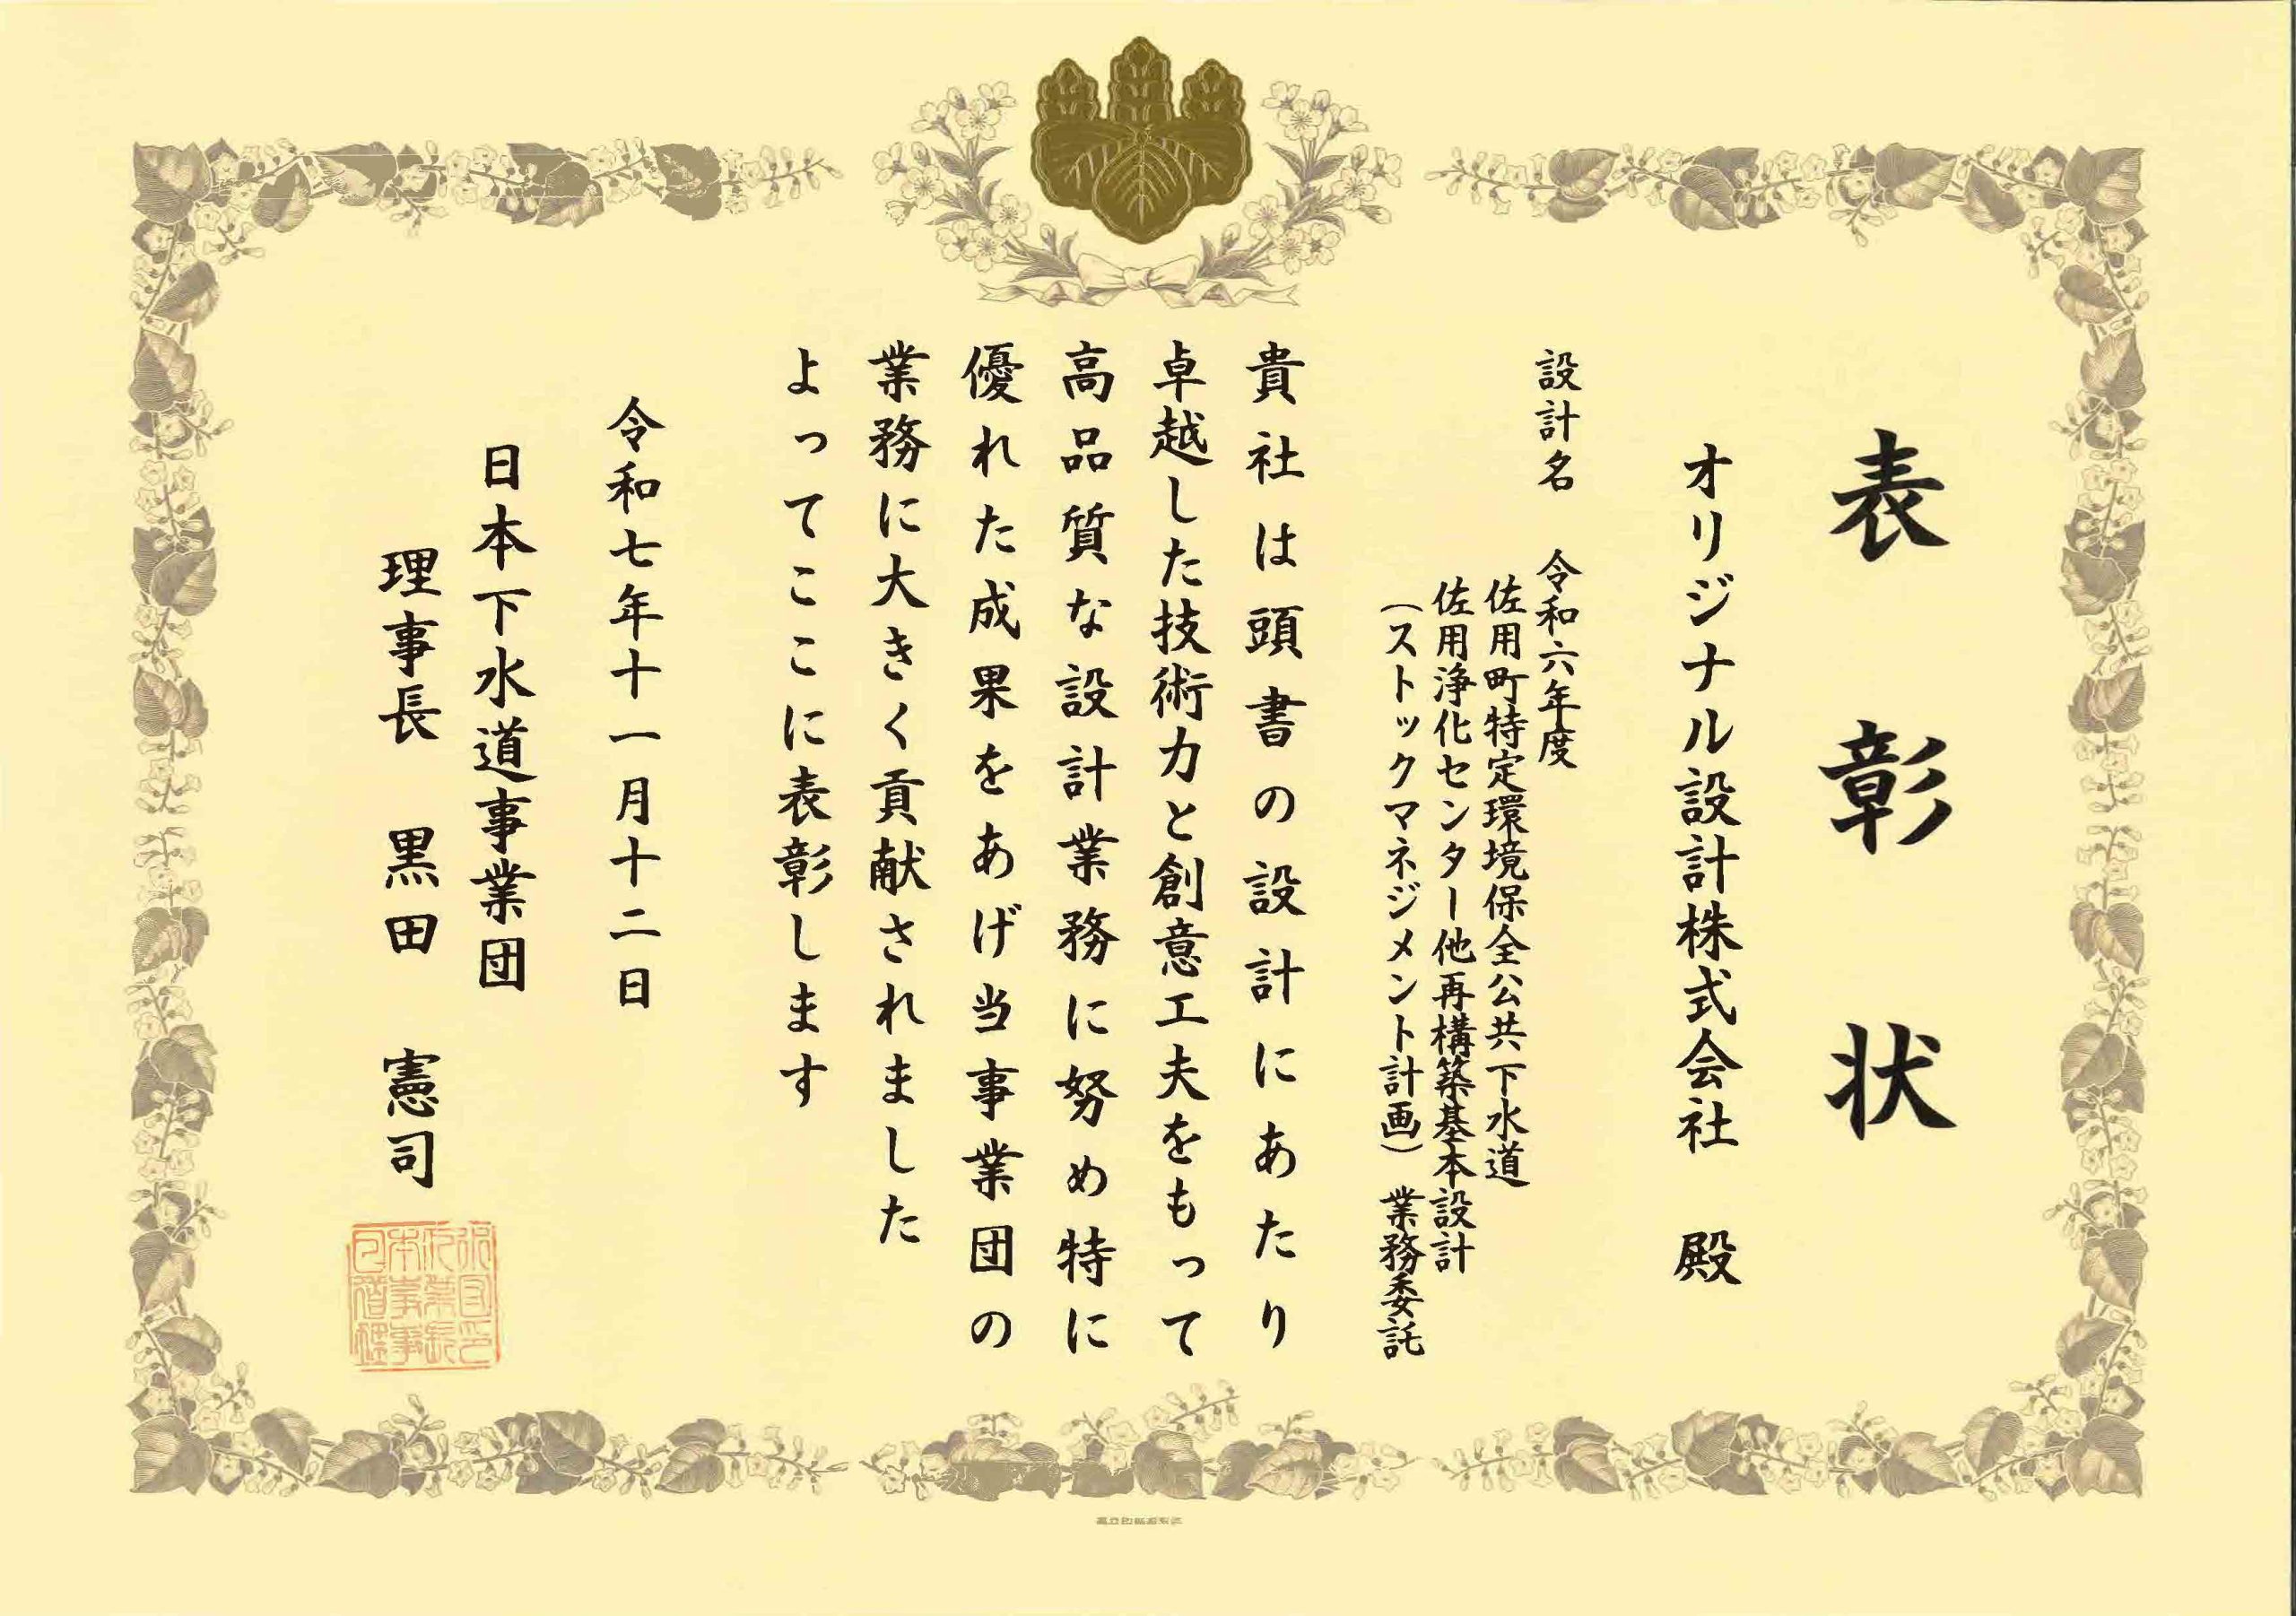 表彰状
オリジナル設計株式会社 殿
設計名 令和六年度
佐用町特定環境保全公共下水道
佐用浄化センター他再構築基本設計
(ストックマネジメント計画) 業務委託
貴社は頭書の設計にあたり
卓越した技術力と創意工夫をもって
高品質な設計業務に努め特に
優れた成果をあげ当事業団の
業務に大きく貢献されました
よってここに表彰します
令和七年十一月十二日
日本下水道事業団
理事長 黒田 憲司